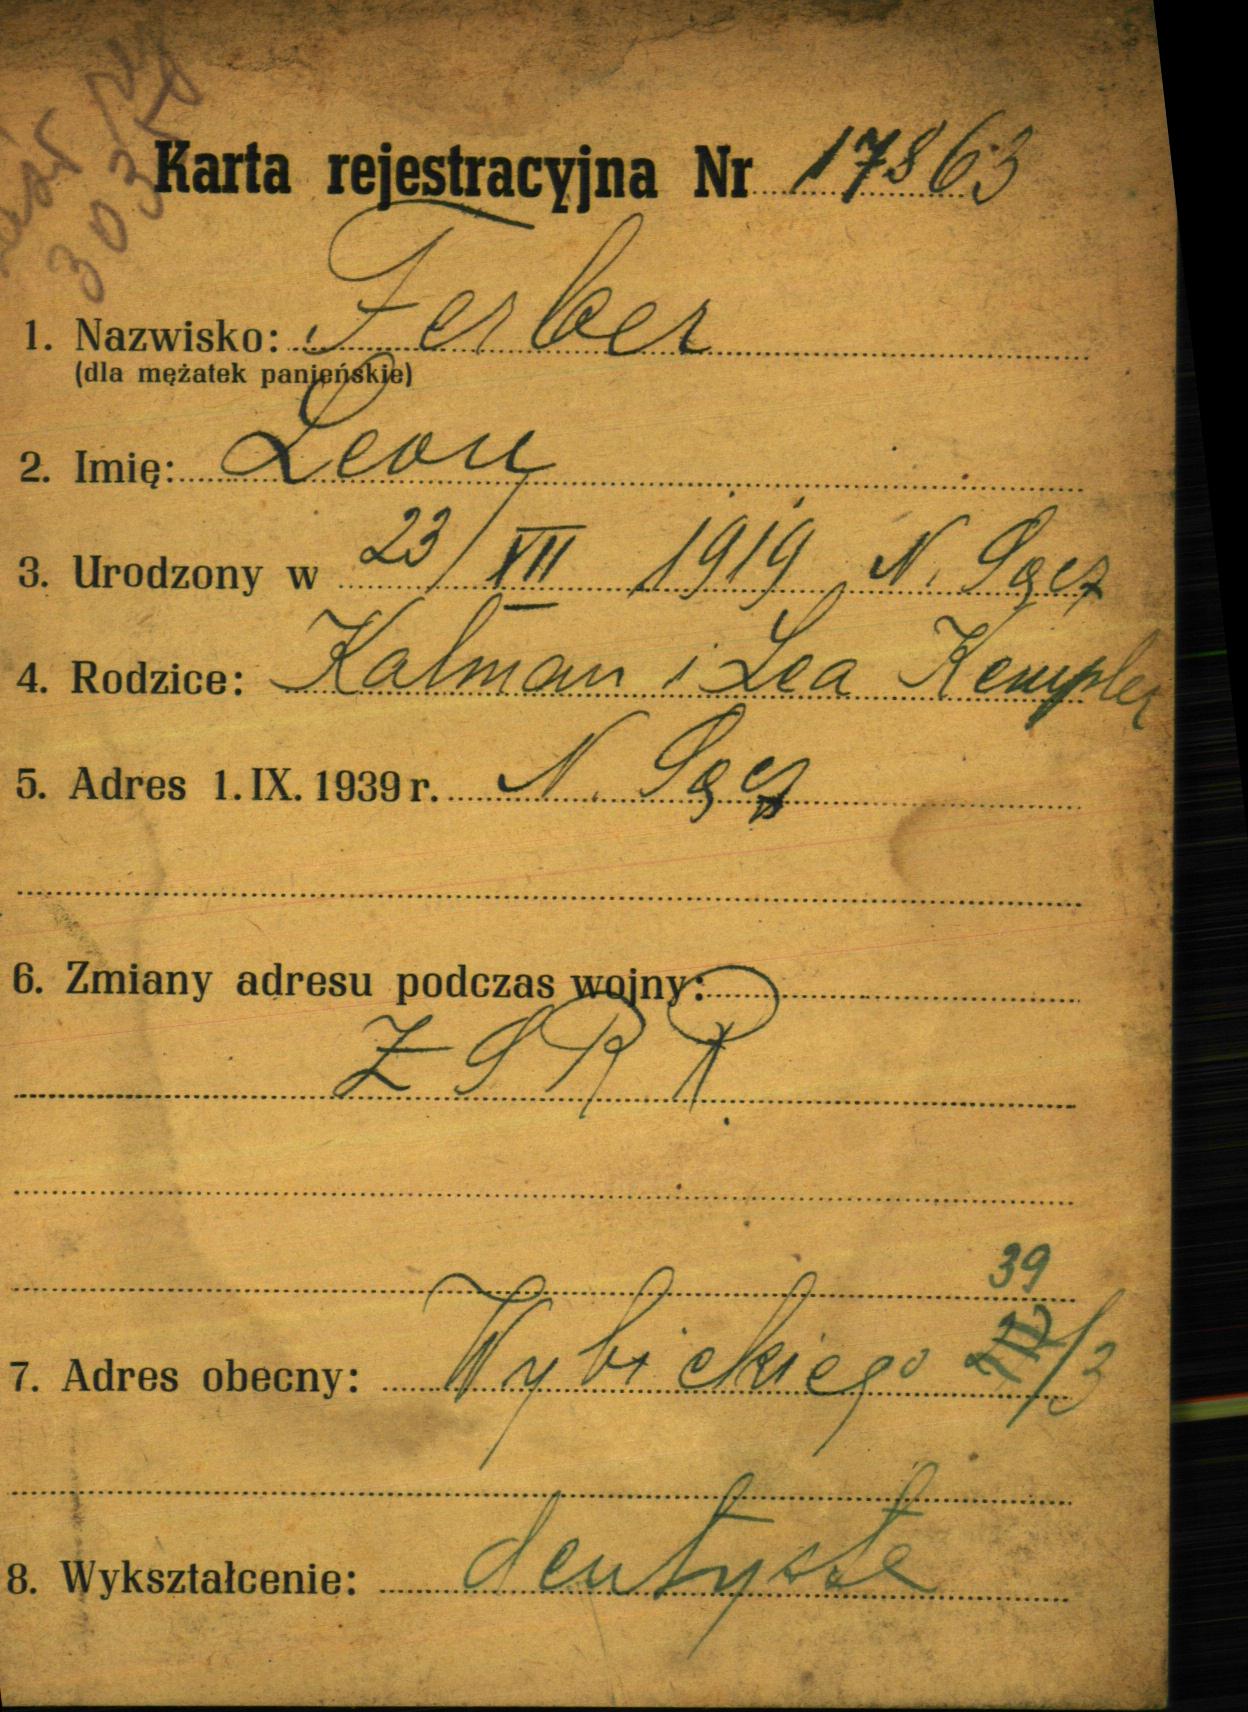 30350
Karta rejestracyjna Nr 17863
1. Nazwisko: Ferber
(dla mężatek panieńskie)
2. Imię: Leon
3. Urodzony w 23/VII 1919 N. Sącz
4. Rodzice: Kalman i Lea Kempler
5. Adres 1. IX. 1939 r. N. Sącz
6. Zmiany adresu podczas wojny:
ZSRR
39
7. Adres obecny: Wybickiego /3
8. Wykształcenie: dentysta